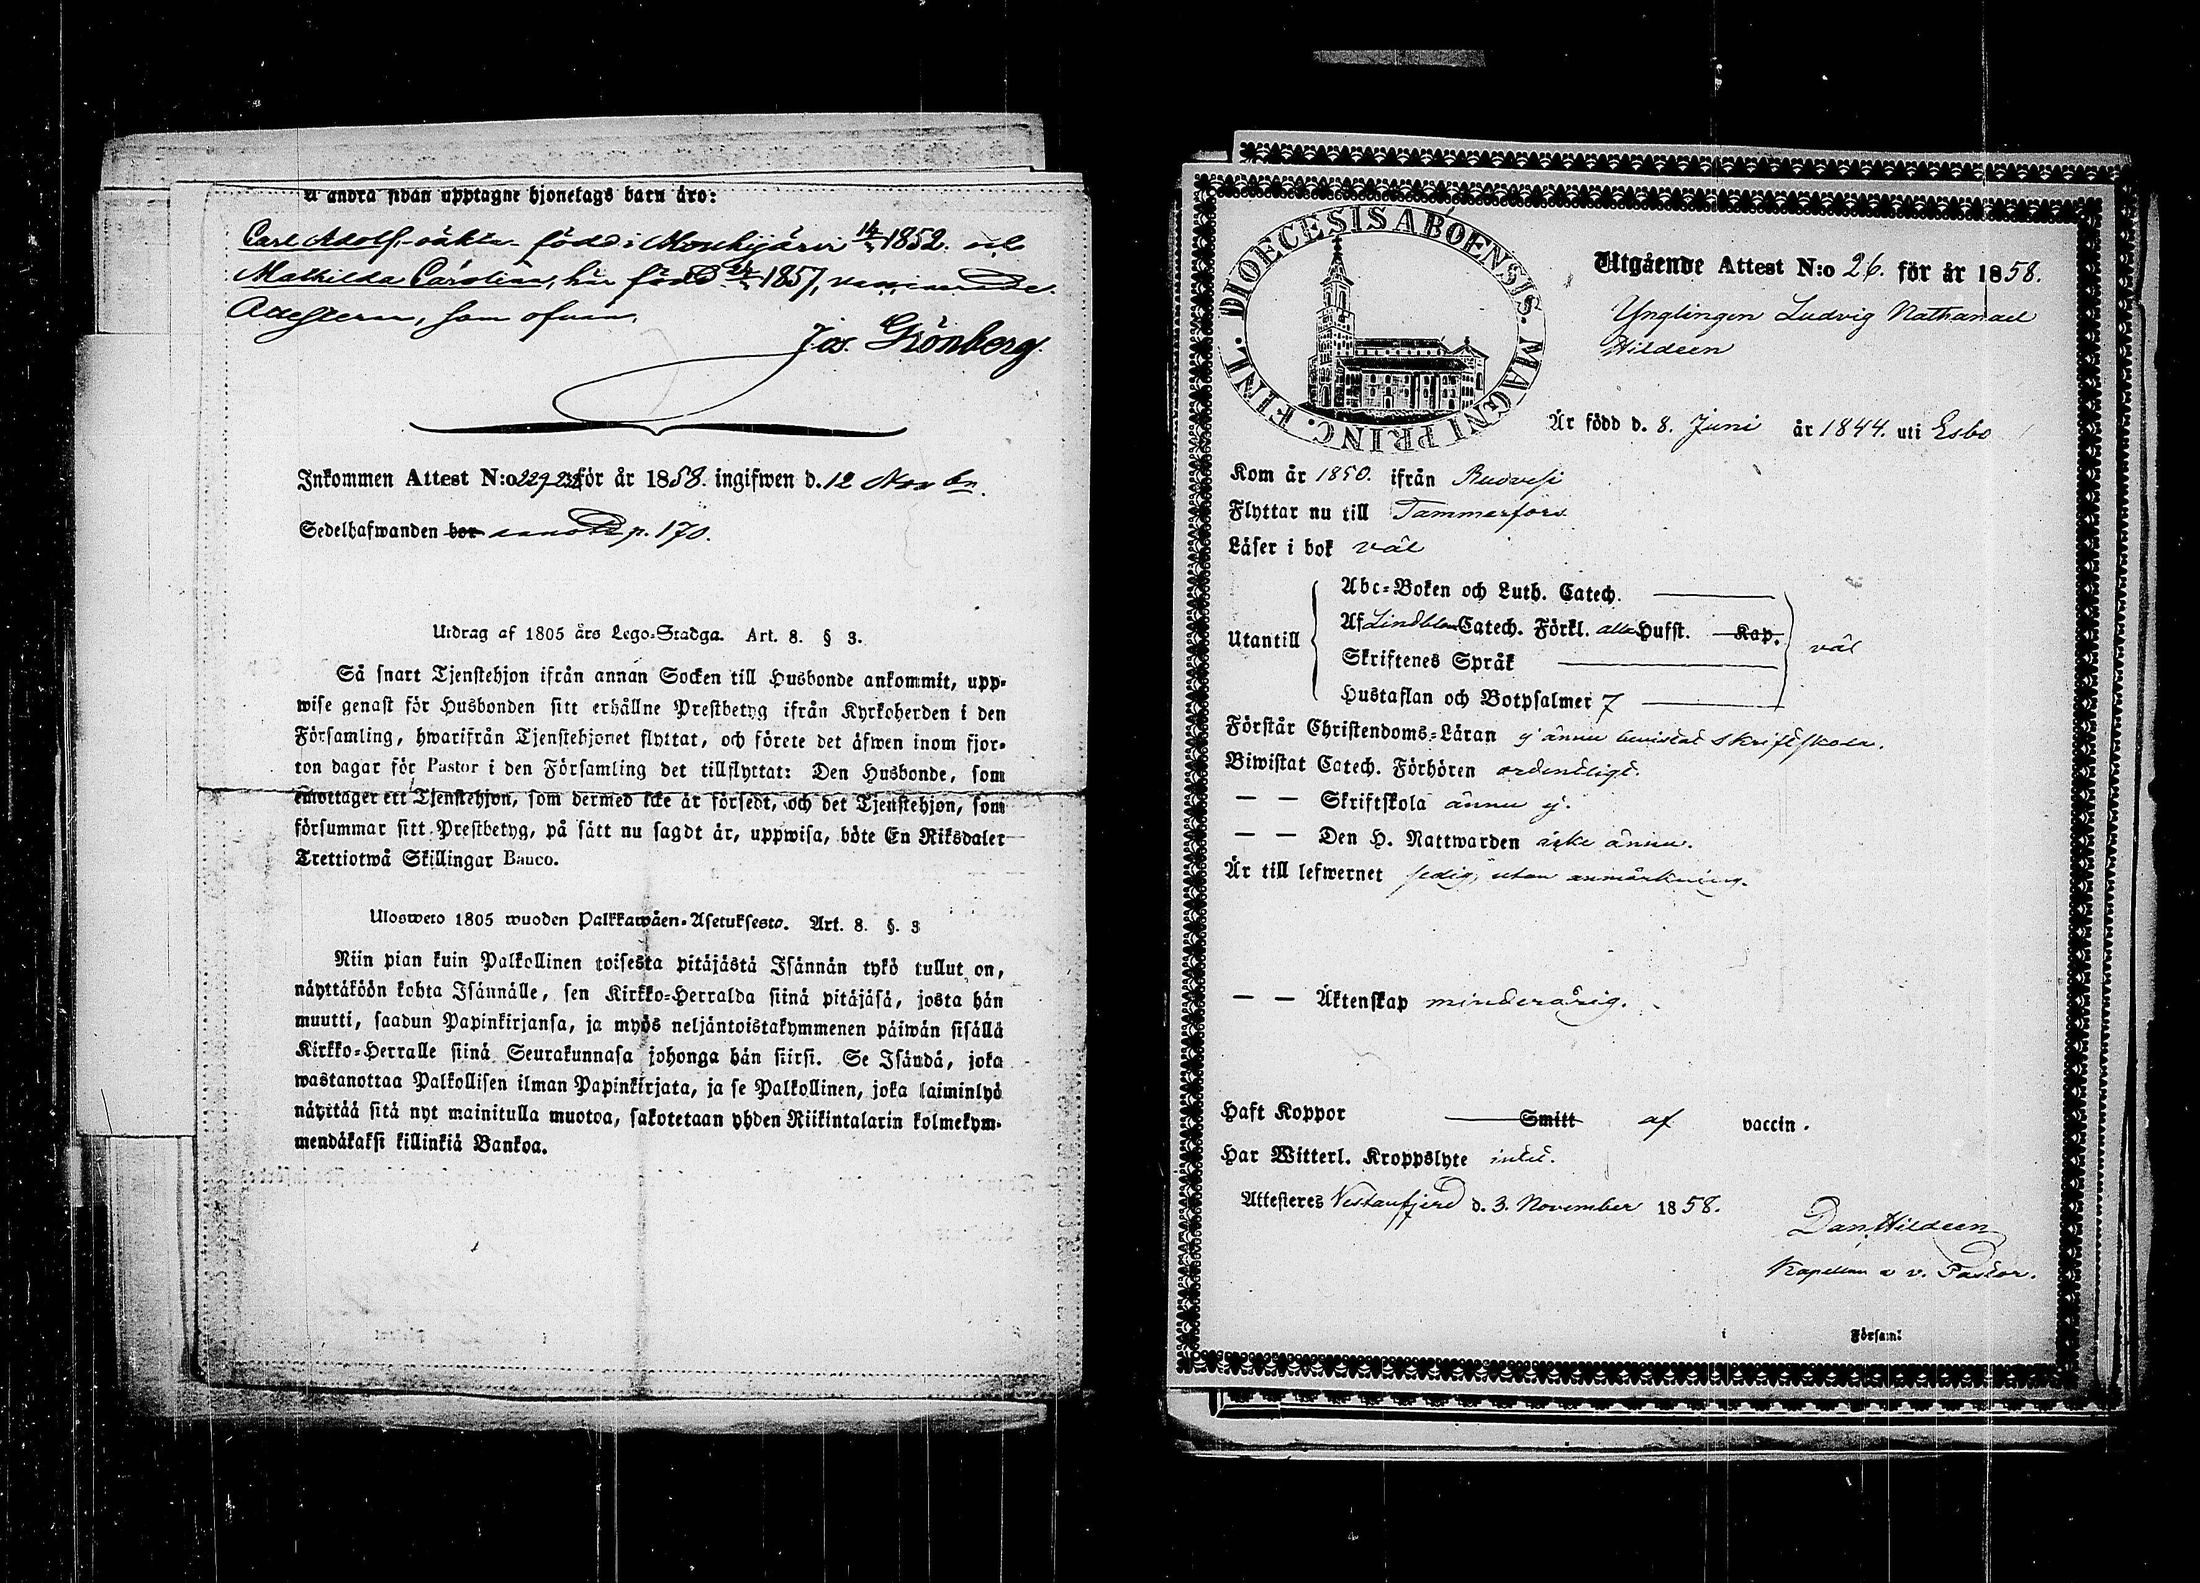 å andra sidan upptagne hjonelags barn äro:
Carl Adolf, äkta född i Mouhijärvi 1852. och
Mathilda Carolina, här född 1857, vaccinerade.
Attesteras, som ofvan.
Jos. Grönberg.
Inkommen Attest N:o 229-232 för år 1858. ingifwen d. 12 Novbr.
Sedelhafwanden bor p. 170.
Utdrag af 1805 års Lego-Stadga. Art. 8. § 3.
Så snart Tjenstehjon ifrån annan Socken till Husbonde ankommit, upp-
wise genast för Husbonden sitt erhållne Prestbetyg ifrån Kyrkoherden i den
Församling, hwarifrån Tjenstehjonet flyttat, och förete det äfwen inom fjor-
ton dagar för Pastor i den Församling det tillflyttat: Den Husbonde, som
emottager ett Tjenstehjon, som dermed icke är försedt, och det Tjenstehjon, som
försummar sitt Prestbetyg, på sätt nu sagdt är, uppwisa, böte En Riksdaler
Trettiotwå Skillingar Banco.
Ulosweto 1805 wuoden Palkkawäen-Asetuksesta. Art. 8. §. 3
Niin pian kuin Palkollinen toisesta pitäjästä Isännän tykö tullut on,
näyttäköön kohta Isännälle, sen Kirkko-Herralda siinä pitäjäsä, josta hän
muutti, saadun Papinkirjansa, ja myös neljäntoistakymmenen päiwän sisällä
Kirkko-Herralle siinä Seurakunnasa johonga hän siirsi. Se Isändä, joka
wastanottaa Palkollisen ilman Papinkirjata, ja se Palkollinen, joka laiminlyö
näyttää sitä nyt mainitulla muotoa, sakotetaan yhden Riikintalarin kolmekym-
mendäkaksi killinkiä Bankoa.
DIOECESIS ABOENSIS. MAGNI PRINC. FINL.
Utgående Attest N:o 26. för år 1858.
Ynglingen Ludvig Nathanael
Hildeen
Är född d. 8. Juni år 1844. uti Esbo
Kom år 1850. ifrån Ruovesi
Flyttar nu till Tammerfors
Läser i bok väl
Utantill
Abc-Boken och Luth. Catech.
Af Lindblms Catech. Förkl. alla Hufst. Kap.
Skriftenes Språk
Hustaflan och Botpsalmer 7
väl
Förstår Christendoms-Läran ej ännu bevistat skriftskola.
Biwistat Catech. Förhören ordentligt.
— — Skriftskola ännu ej.
— — Den H. Nattwarden icke ännu.
Är till lefwernet sedig, utan anmärkning.
— — Äktenskap minderårig.
Haft Koppor Smitt af vaccin.
Har Witterl. Kroppslyte intet.
Attesteres Vestanfjerd d. 3. November 1858.
Dan. Hildeen
Kapellan o v. Pastor.
Församl